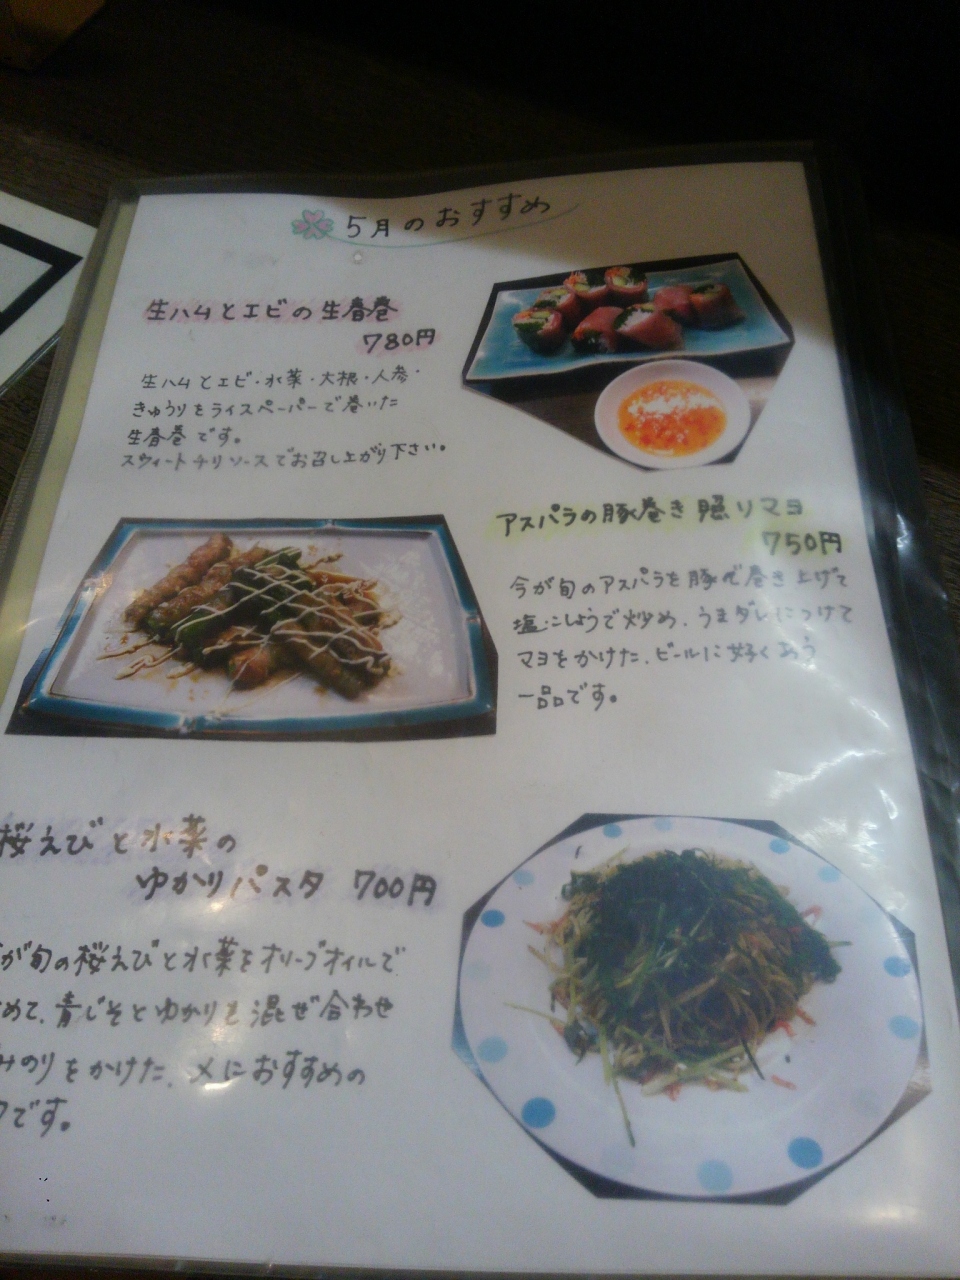 5月のおすすめ
生ハムとエビの生春巻
780円
生ハムとエビ・水菜・大根・人参・
きゅうりをライスペーパーで巻いた
生春巻です。
スウィートチリソースでお召し上がり下さい。
アスパラの豚巻き照りマヨ
750円
今が旬のアスパラを豚で巻き上げて
塩こしょうで炒め、うまダレにつけて
マヨをかけた、ビールに好くあう
一品です。
桜えびと水菜の
ゆかりパスタ 700円
が旬の桜えびと水菜をオリーブオイルで
めて、青じそとゆかりを混ぜ合わせ
みのりをかけた、〆におすすめの
です。